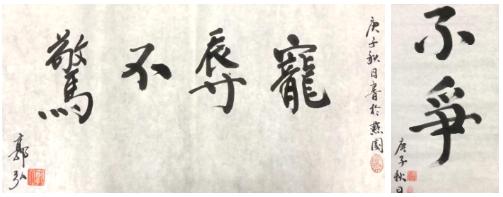 庚子秋月書於燕園
寵辱不驚
郭弘
不爭
庚子秋日